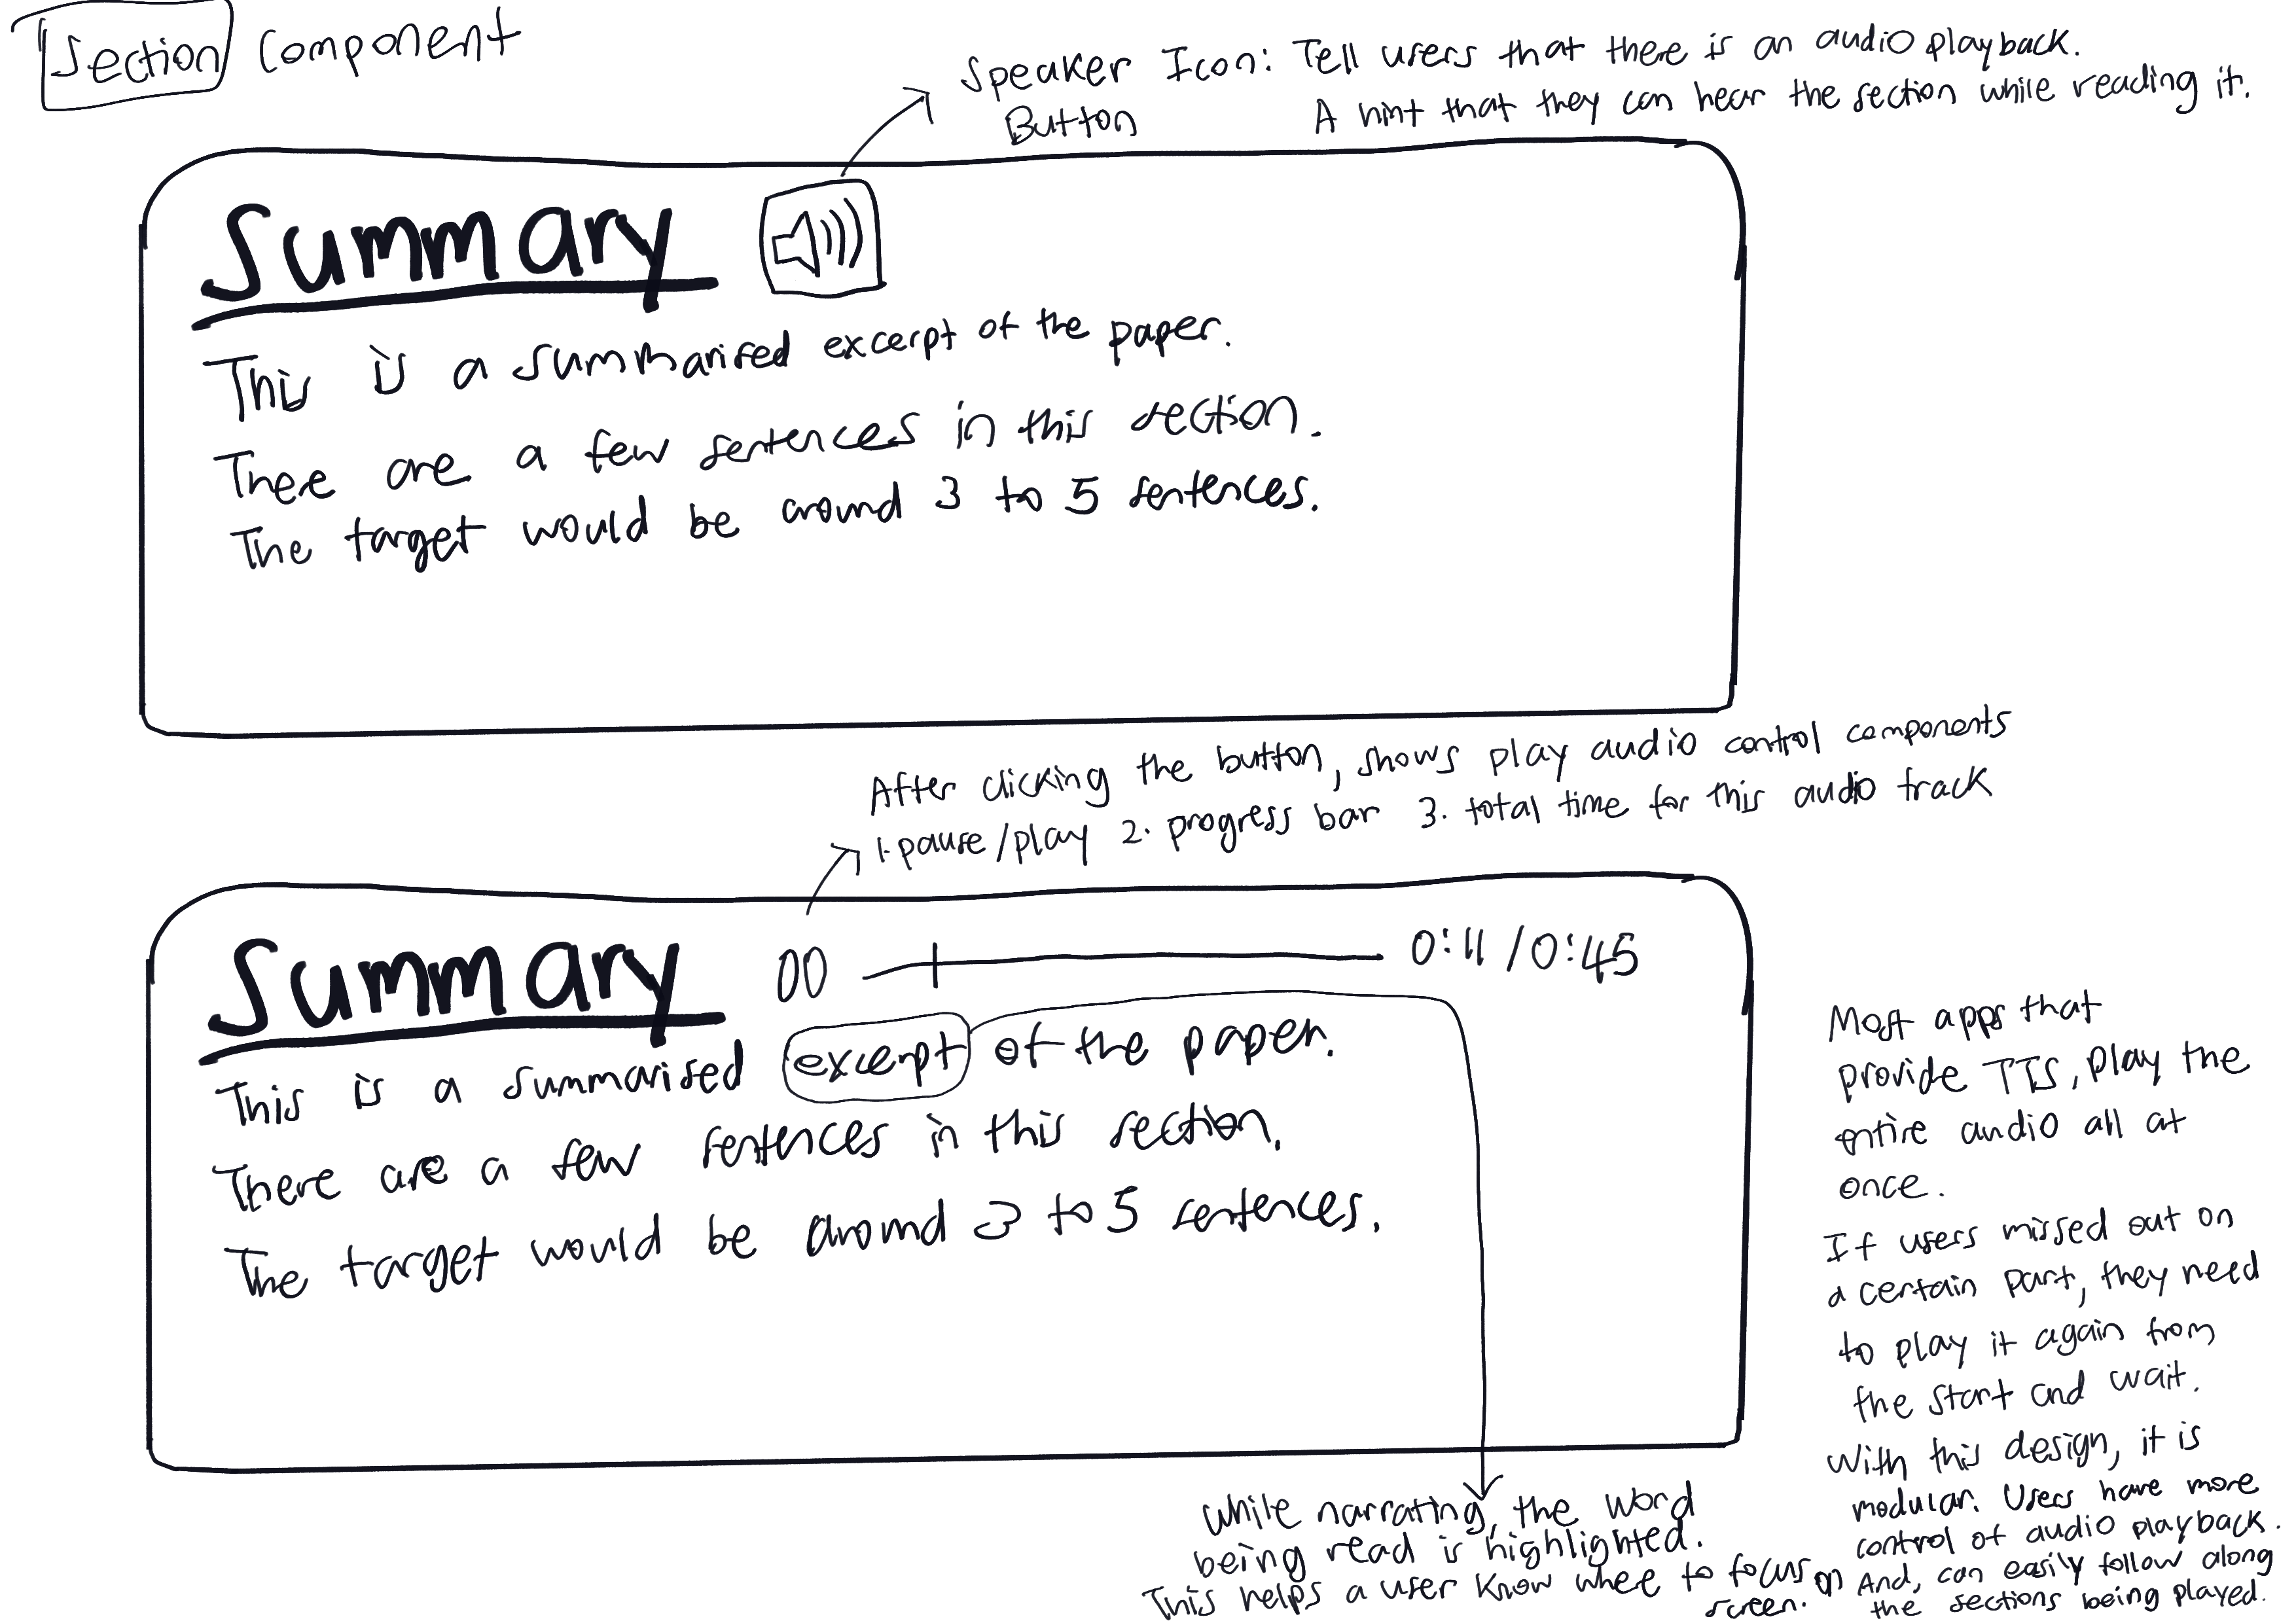 Section Component
Speaker Icon: Tell users that there is an audio playback.
Button A hint that they can hear the section while reading it.
Summary
This is a summarised excerpt of the paper.
There are a few sentences in this section.
The target would be around 3 to 5 sentences.
After clicking the button, shows play audio control components
1. pause/play 2. progress bar 3. total time for this audio track
Summary 0:11 / 0:45
This is a summarised excerpt of the paper.
There are a few sentences in this section.
The target would be around 3 to 5 sentences.
While narrating, the word
being read is highlighted.
This helps a user know where to focus on
screen.
Most apps that
provide TTS, play the
entire audio all at
once.
If users missed out on
a certain part, they need
to play it again from
the start and wait.
With this design, it is
modular. Users have more
control of audio playback.
And, can easily follow along
the sections being played.